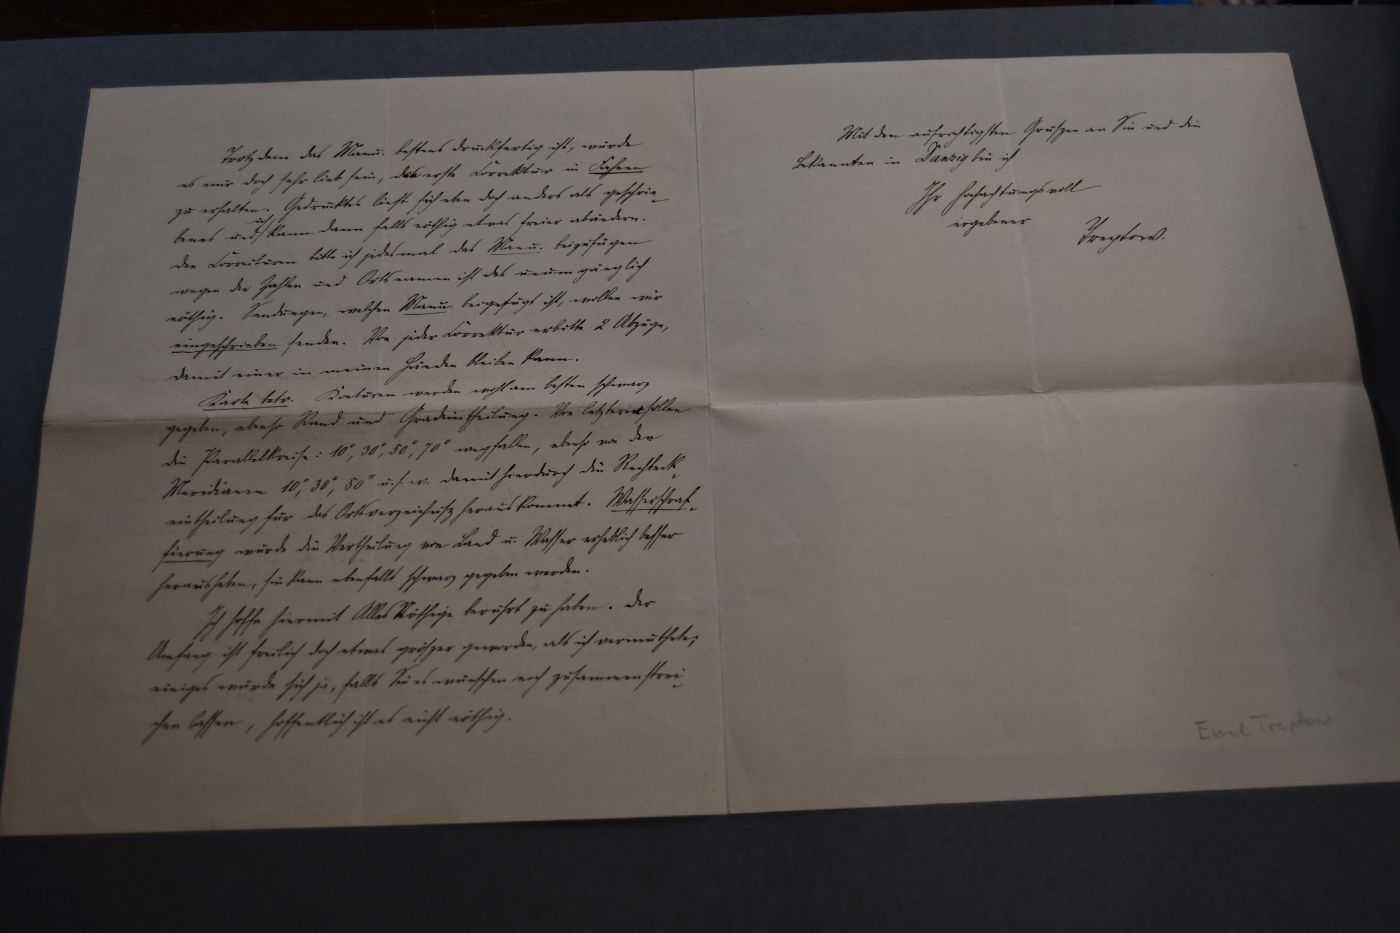 Trotzdem das Manu. bestens druckfertig ist, würde
es mir doch sehr lieb sein, die erste Correktur in Fahnen
zu erhalten. Gedrucktes liest sich eben doch anders als geschrie-
benes und ich kann dann falls nöthig etwas freier abändern.
Den Correcturen bitte ich jedesmal das Manu. beizufügen
wegen der Zahlen und Ortsnamen ist das unumgänglich
nöthig. Sendungen, welchen Manu. beigefügt ist, wollen wir
eingeschrieben senden. Von jeder Correktur erbitte 2 Abzüge,
damit einer in meinen Händen bleiben kann.
Karte betr. Konturen werden wohl am besten schwarz
gegeben, ebenso Rand und Gradeintheilung. Von letzterer sollen
die Parallelkreise: 10°, 30°, 50°, 70° wegfallen, ebenso von den
Meridianen 10°, 30°, 50° u.s.w. damit hierdurch die Rechteck-
eintheilung für das Ortsverzeichniß herauskommt. Wasserschraf-
fierung würde die Vertheilung von Land u. Wasser erheblich besser
herausheben, sie kann ebenfalls schwarz gegeben werden.
Ich hoffe hiermit Alles Nöthige berührt zu haben. Der
Umfang ist freilich doch etwas größer geworden, als ich vermuthete;
einiges würde sich ja, falls Sie es wünschen noch zusammenstrei-
chen lassen, hoffentlich ist es nicht nöthig.
Mit den aufrichtigsten Grüßen an Sie und die
Bekannten in Danzig bin ich
Ihr hochachtungsvoll
ergebener
Treptow.
Emil Treptow